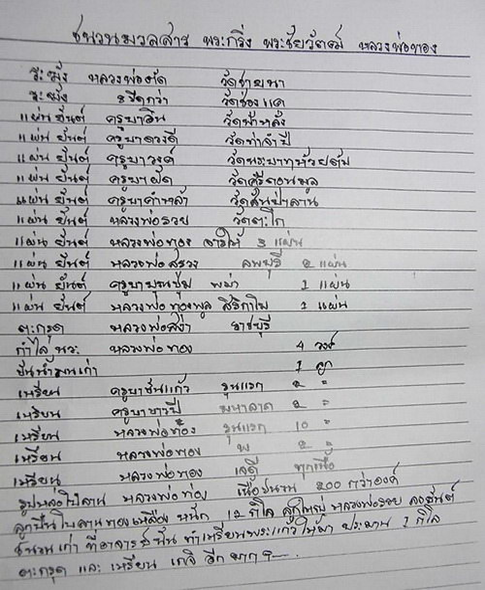 ชนวนมวลสาร พระกริ่ง พระชัยวัฒน์ หลวงพ่อทอง
ระฆัง หลวงพ่อตัด วัดชายนา
ระฆัง 8 ขีดกว่า วัดช่องแค
แผ่น ยันต์ ครูบาอิน วัดฟ้าหลั่ง
แผ่น ยันต์ ครูบาดวงดี วัดท่าจำปี
แผ่น ยันต์ ครูบาวงค์ วัดพระบาทห้วยต้ม
แผ่น ยันต์ ครูบาผัด วัดศรีดอนมูล
แผ่น ยันต์ ครูบาคำหล้า วัดสันป่าลาน
แผ่น ยันต์ หลวงพ่อรวย วัดตะโก
แผ่น ยันต์ หลวงพ่อทอง จารให้ 3 แผ่น
แผ่น ยันต์ หลวงพ่อสรวง ลพบุรี 2 แผ่น
แผ่น ยันต์ ครูบาบุญชุ่ม พม่า 1 แผ่น
แผ่น ยันต์ หลวงพ่อทองพูล สิริกาโม 1 แผ่น
ตะกรุด หลวงพ่อสง่า ราชบุรี
กำไล นวะ หลวงพ่อทอง 4 วง
ขันน้ำมนต์เก่า 1 ลูก
เหรียญ ครูบาขันแก้ว รุ่นแรก 2 "
เหรียญ ครูบาขาวปี มหาลาภ 2 "
เหรียญ หลวงพ่อทอง รุ่นแรก 10 "
เหรียญ หลวงพ่อทอง พ 2 "
เหรียญ หลวงพ่อทอง เจดีย์ ทุกเนื้อ
รูปหล่อโบราณ หลวงพ่อทอง เนื้อชนวน 200 กว่าองค์
ลูกปืนโบราณทองเหลือง หนัก 12 กิโล ลูกใหญ่ หลวงพ่อรวย ลงยันต์
ชนวนเก่า ที่อาจารย์ ทำเหรียญพระแก้ว ให้มา ประมาณ 1 กิโล
ตะกรุด และ เหรียญ เกจิ อีก มาก ๆ